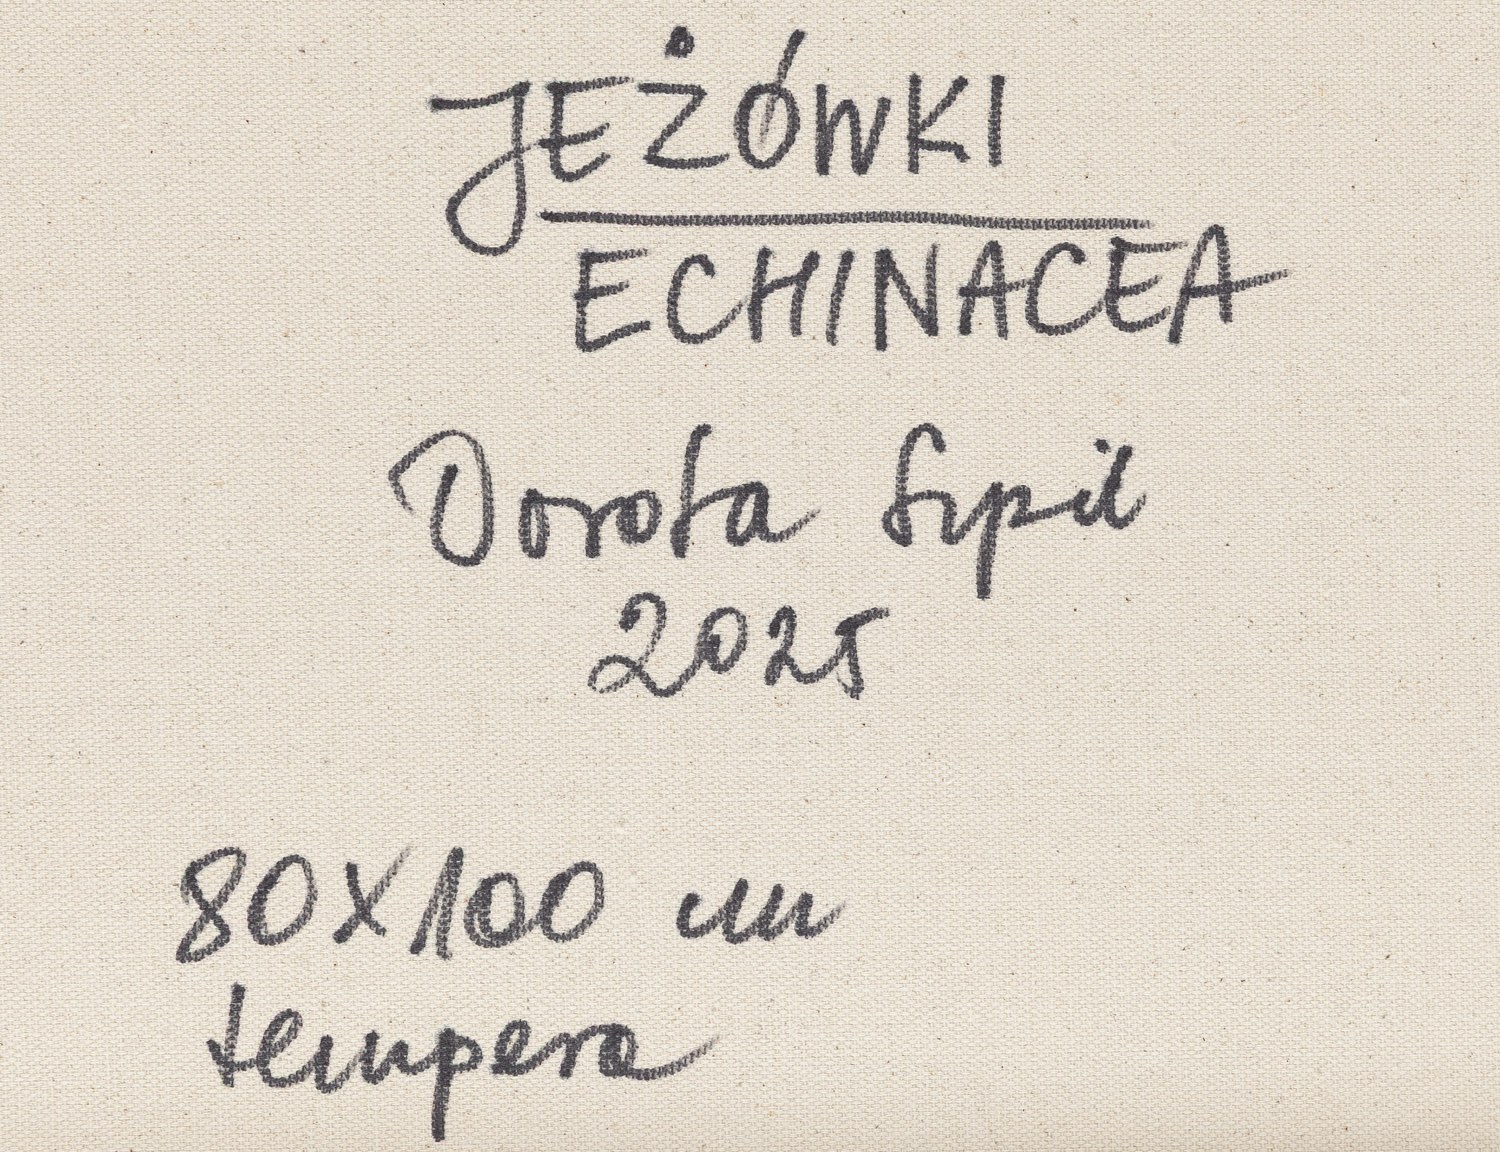 JEŻÓWKI
ECHINACEA
Dorota Sypil
2025
80X100 cm
tempera